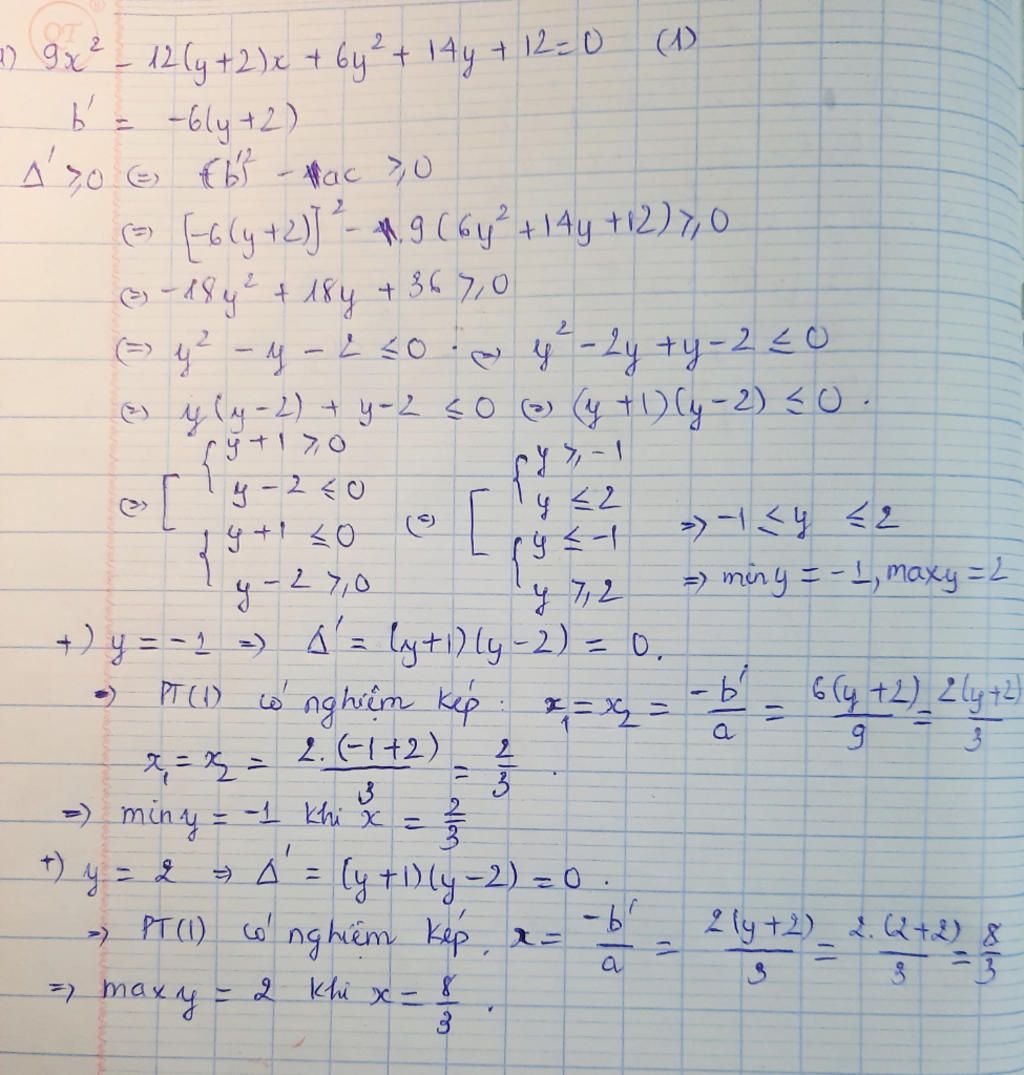 1) 9x² - 12(y+2)x + 6y² + 14y + 12 = 0 (1)
b' = -6(y+2)
Δ' ≥ 0 ⇔ (b')² - ac ≥ 0
⇔ [-6(y+2)]² - 9(6y² + 14y + 12) ≥ 0
⇔ -18y² + 18y + 36 ≥ 0
⇔ y² - y - 2 ≤ 0 . ⇔ y² - 2y + y - 2 ≤ 0
⇔ y(y-2) + y-2 ≤ 0 ⇔ (y+1)(y-2) ≤ 0 .
⇔ [ { y+1 ≥ 0 ⇔ [ { y ≥ -1
y - 2 ≤ 0 y ≤ 2 ⇒ -1 ≤ y ≤ 2
{ y+1 ≤ 0 { y ≤ -1
y - 2 ≥ 0 y ≥ 2 ⇒ min y = -1, max y = 2
+) y = -1 ⇒ Δ' = (y+1)(y-2) = 0.
⇒ PT(1) có nghiệm kép: x₁ = x₂ = -b'/a = 6(y+2)/9 = 2(y+2)/3
x₁ = x₂ = 2.(-1+2)/3 = 2/3 .
⇒ min y = -1 khi x = 2/3
+) y = 2 ⇒ Δ' = (y+1)(y-2) = 0 .
⇒ PT(1) có nghiệm kép. x = -b'/a = 2(y+2)/3 = 2.(2+2)/3 = 8/3
⇒ max y = 2 khi x = 8/3 .